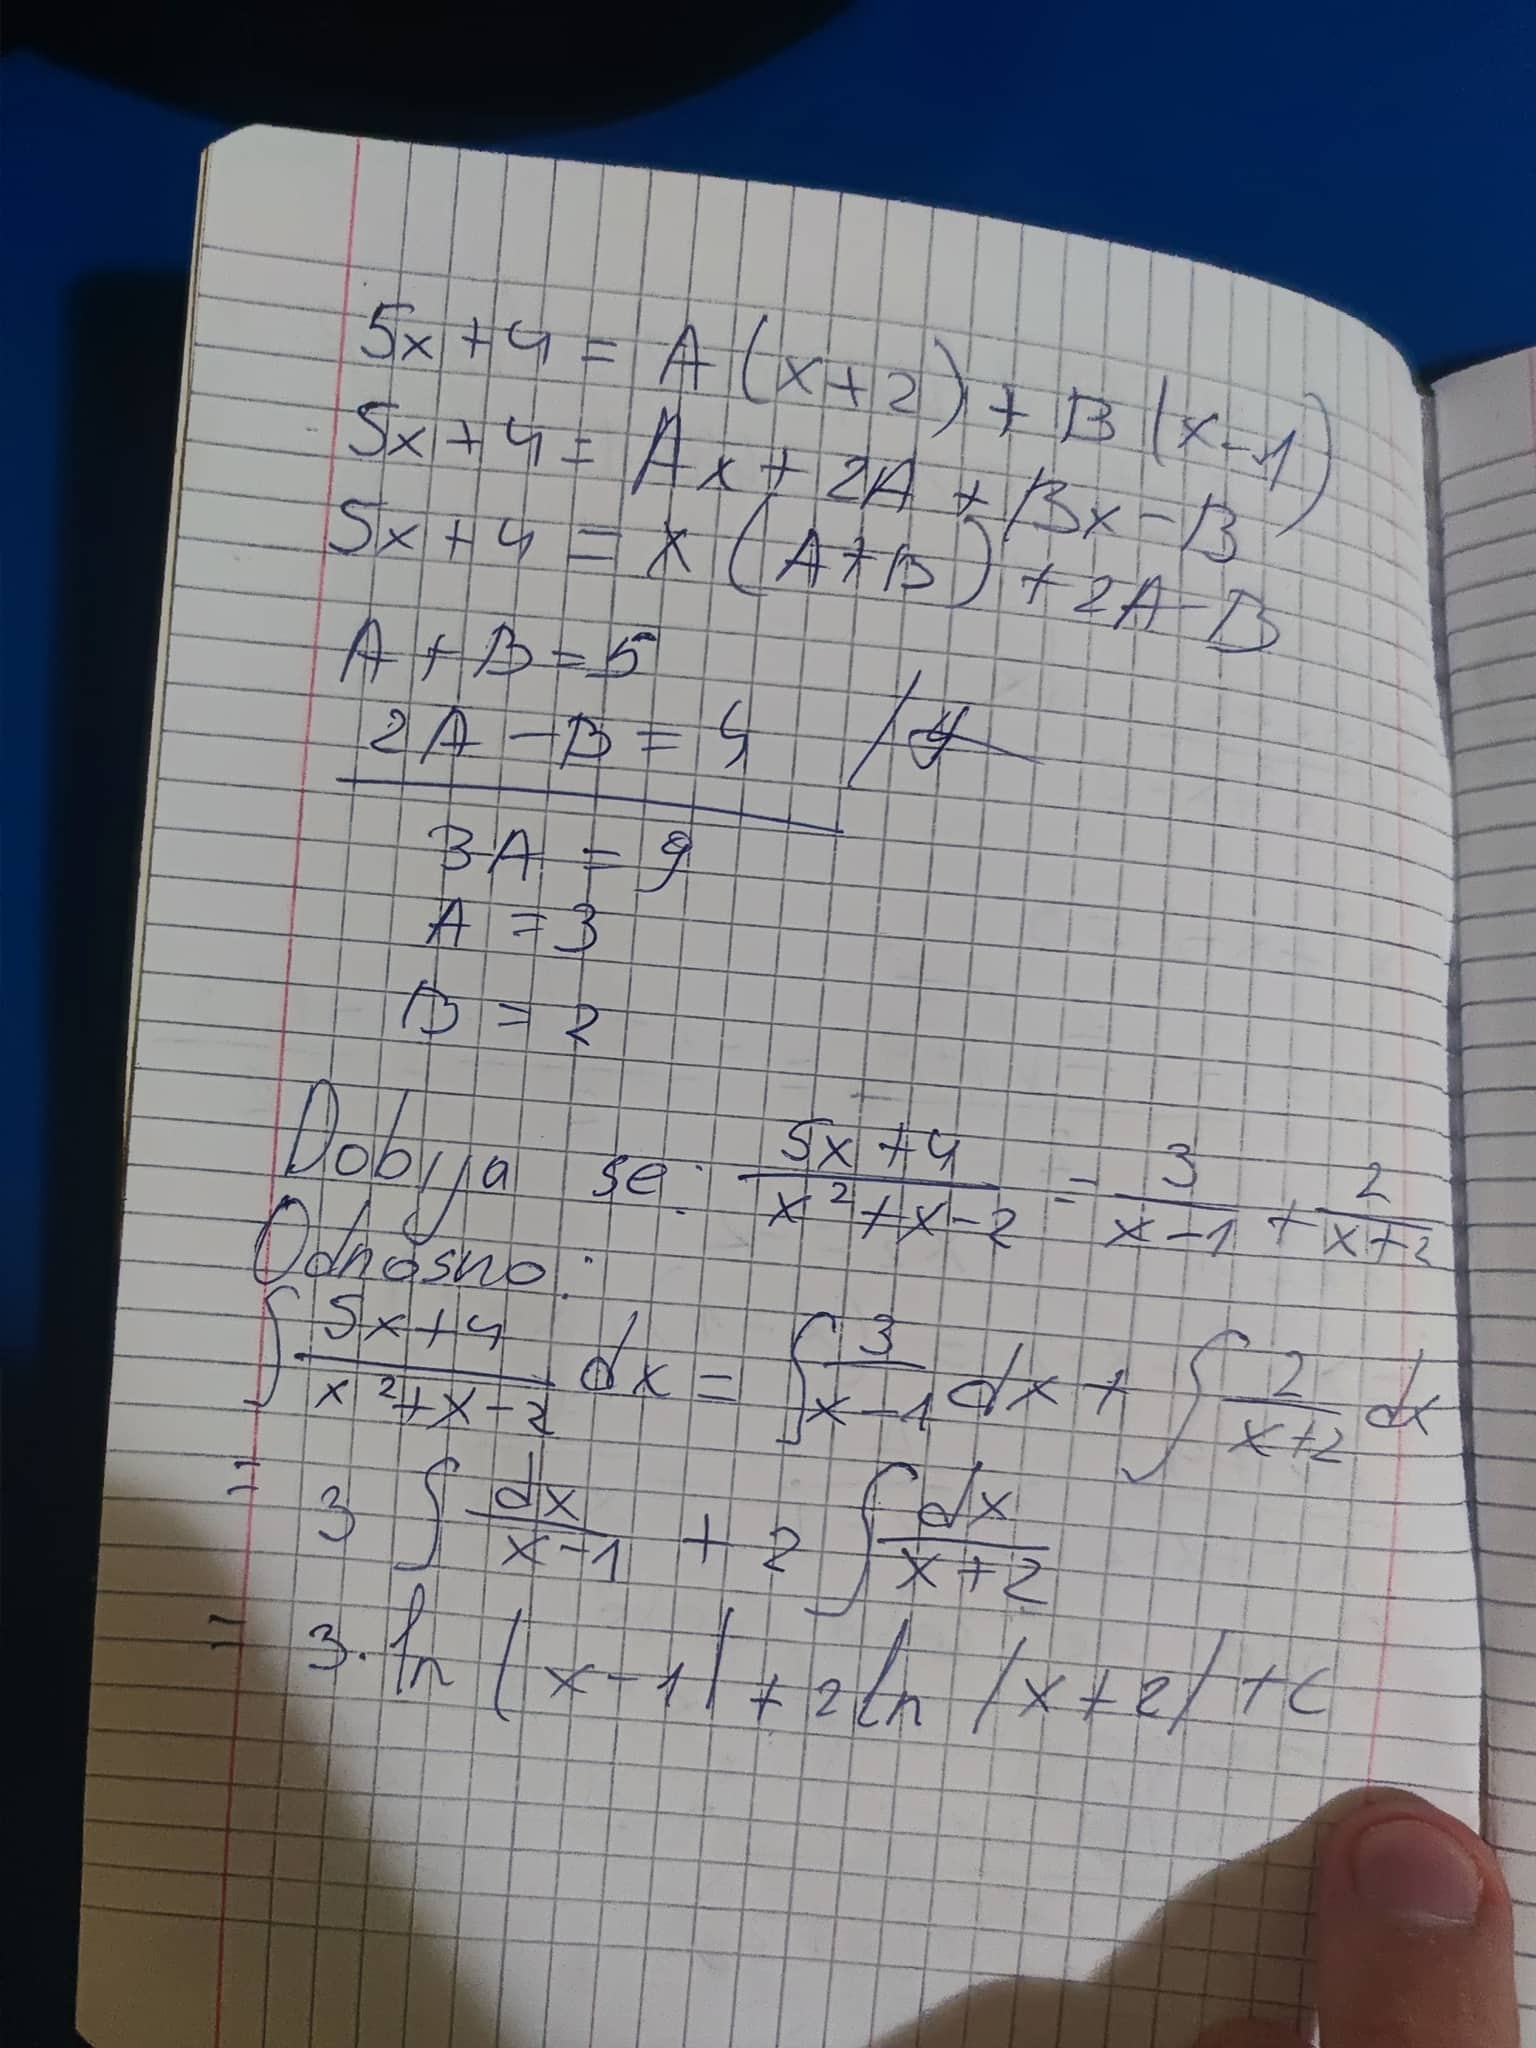 5x+4 = A(x+2) + B(x-1)
5x+4 = Ax+2A+Bx-B
5x+4 = x(A+B)+2A-B
A+B=5
2A-B=4 /
3A=9
A=3
B=2
Dobija se: \frac{5x+4}{x^2+x-2} = \frac{3}{x-1} + \frac{2}{x+2}
Odnosno:
∫\frac{5x+4}{x^2+x-2} dx = ∫\frac{3}{x-1} dx + ∫\frac{2}{x+2} dx
= 3 ∫\frac{dx}{x-1} + 2 ∫\frac{dx}{x+2}
= 3·ln|x-1| + 2ln|x+2|+C